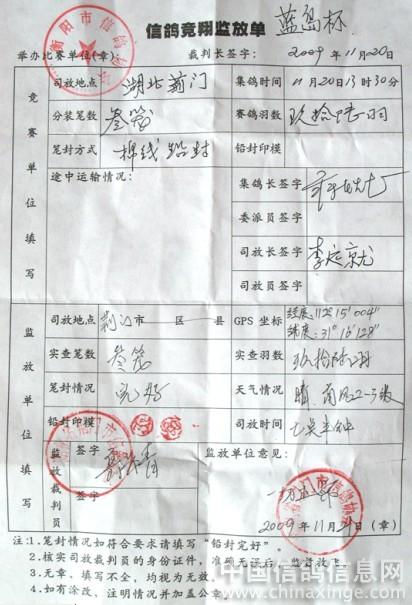 信鸽竞翔监放单 蓝岛杯
衡阳市信鸽协会
举办比赛单位(章): 裁判长签字: 2009年11月20日
竞赛单位填写
司放地点 湖北荆门 集鸽时间 11月20日13时30分
分装笼数 叁笼 赛鸽羽数
笼封方式 棉线铅封 铅封印模
途中运输情况: 集鸽长签字
委派员签字
司放长签字 李定就
司放员签字
监放单位填写
司放地点 荆门市 区 县 GPS 坐标 经度:112°15′004″
纬度:31°
实查笼数 叁笼 实查羽数
笼封情况 完好 天气情况 晴
铅封印模 司放时间 七点半钟
监放裁判员 签字 监放单位意见:
签字
2009年11月 日(章)
注:1.笼封情况如符合要求请填写“铅封完好”。
2.核实司放裁判员的身份证件,准确无误后,监督放飞。
3.无章、填写不全,均视为无效。
4.如有涂改、注明情况并加盖公章。
中国信鸽信息网
www.chinaxinge.com